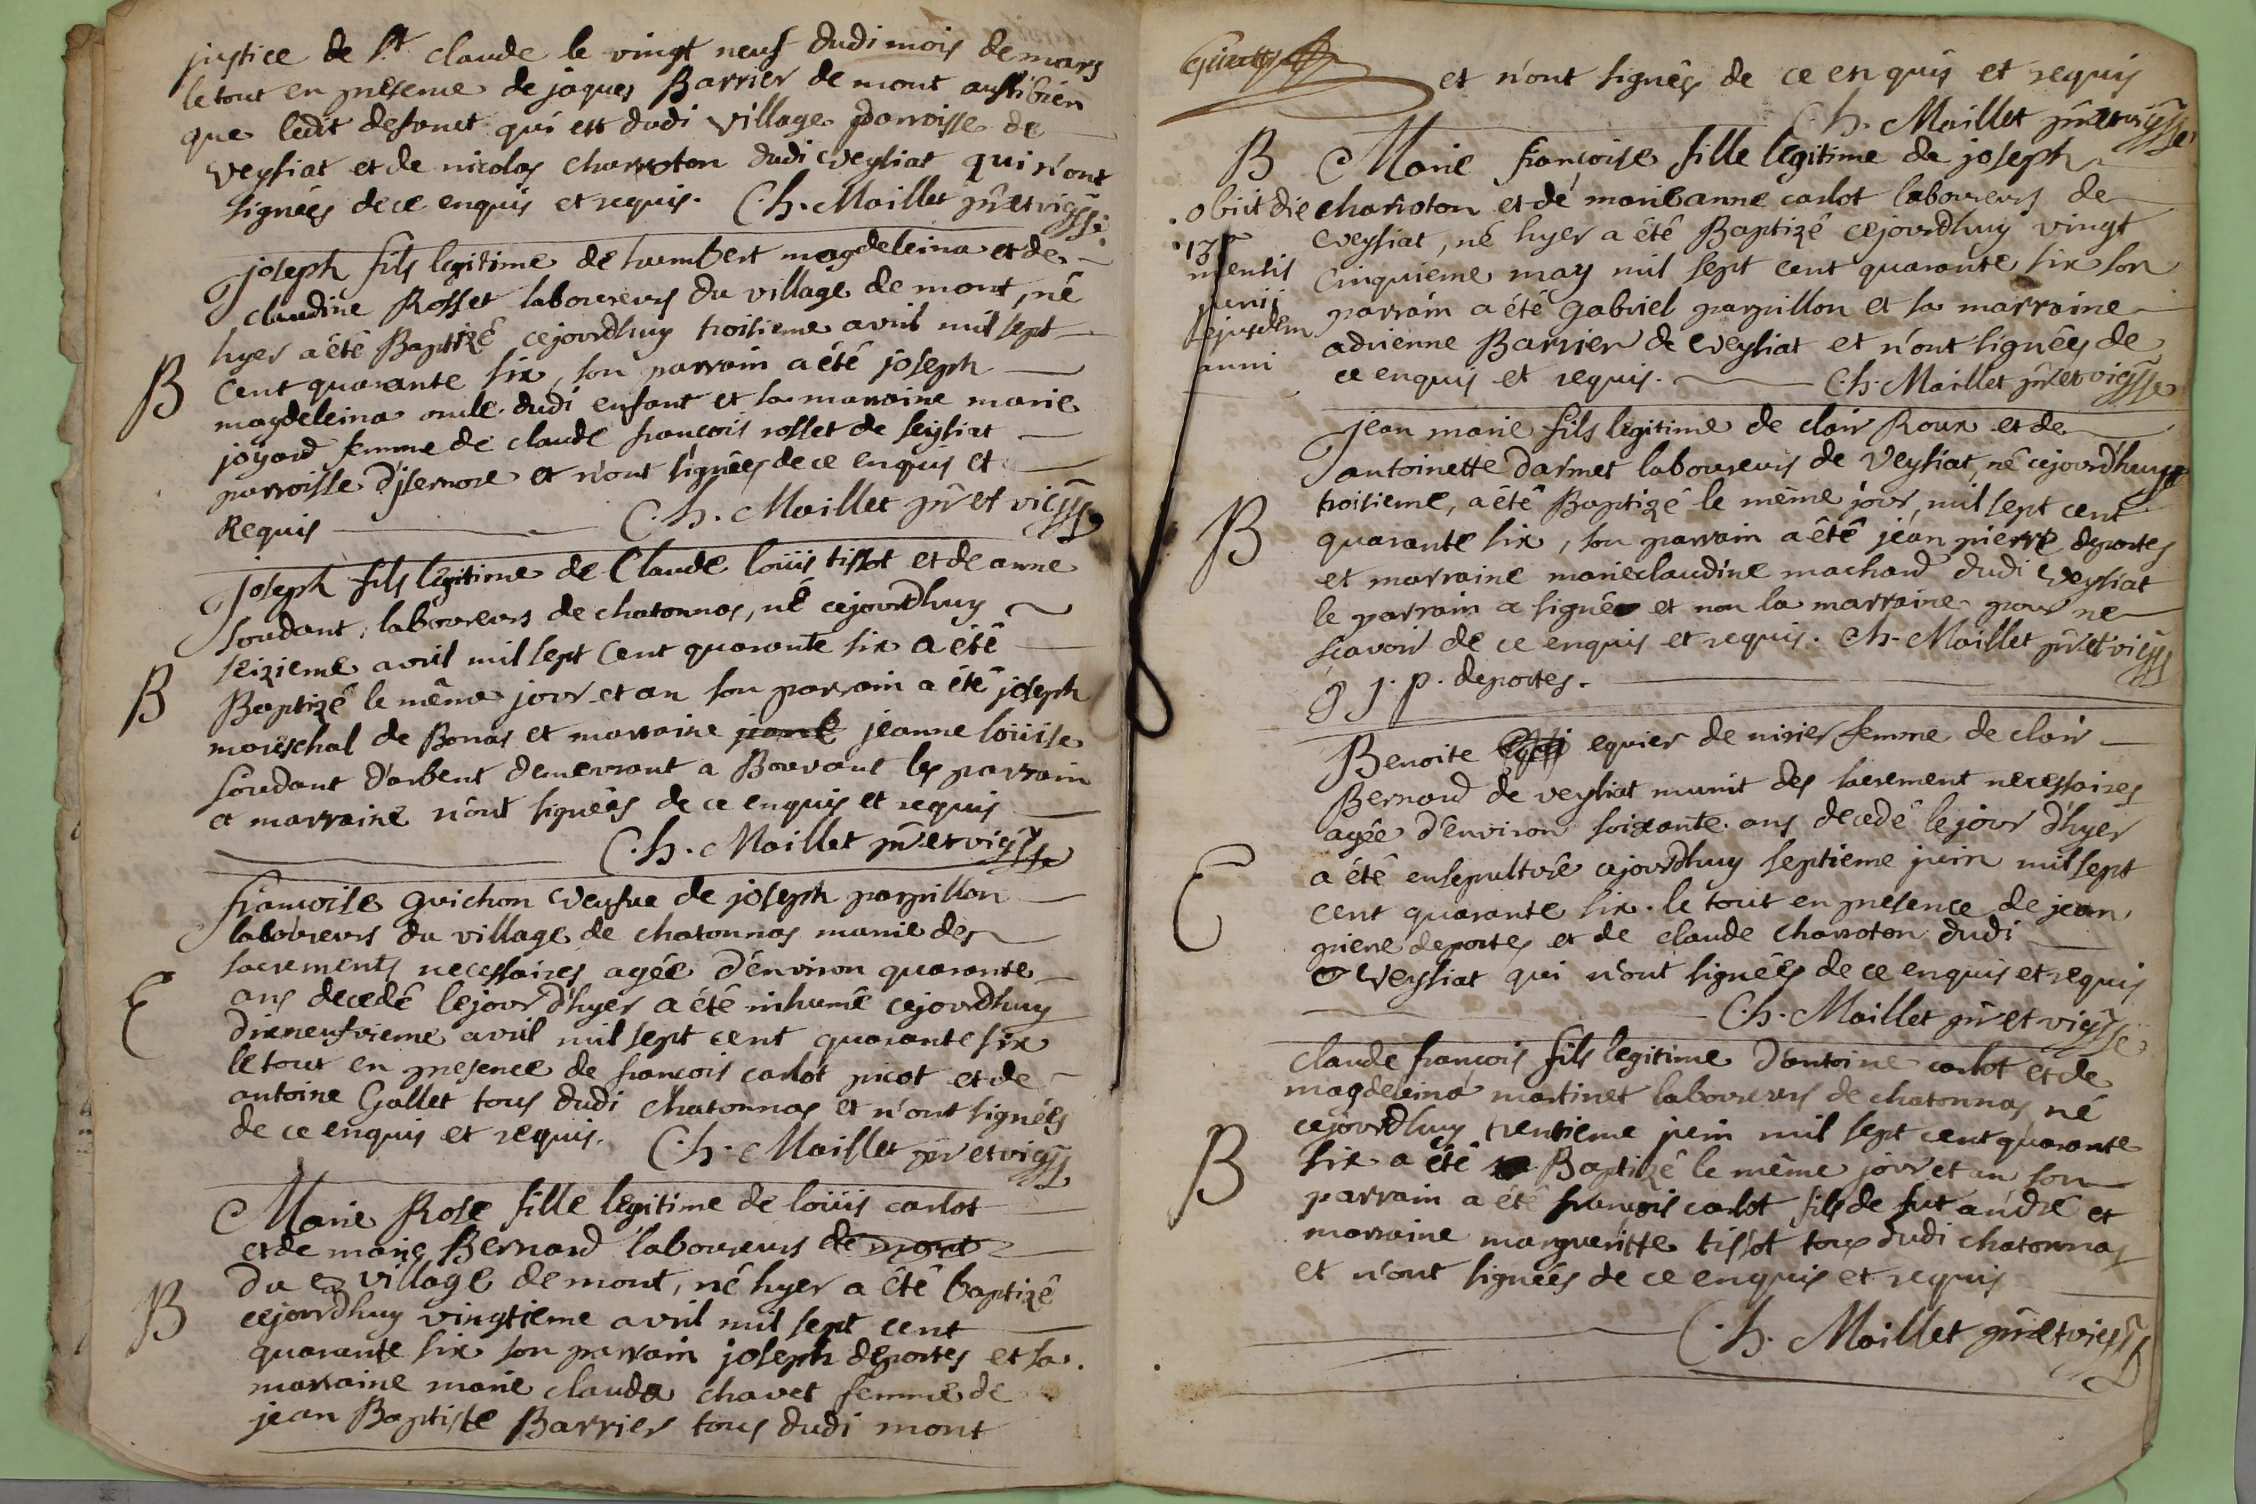 justice de St. claude le vingt neuf dudi mois de mars
le tout en presence de jaques Barrier de mont aussibien
que ledit defunct qui est dudi village parroisse de
veysiat et de nicolas charroton dudi veysiat qui n'ont
signées de ce enquis et requis. C.h. Maillet
joseph fils legitime de humbert magdeleina et de
claudine Rosset laboureurs du village de mont, né
hyer a été Baptizé cejourdhuy troisieme avril mil sept
B
cent quarante six, son parrain a été joseph
magdeleina oncle dudi enfant et sa marraine marie
joyard femme de claude françois rosset de seysiat
parroisse d'jsernore et n'ont signées de ce enquis et
Requis C.h. Maillet
joseph fils legitime de Claude loüis tissot et de anne
soudant, laboureurs de chatonnas, né cejourdhuy
seizieme avril mil sept cent quarante six a été
B
Baptizé le même jour et an son parrain a été joseph
mareschal de Bonas et marraine jeanne loüise
soudant d'arbent demeurant a Bouvant les parrain
et marraine n'ont signées de ce enquis et requis
C.h. Maillet
francoise guichon veufve de joseph parpillon
laboureurs du village de chatonnas munie des
sacrements necessaires agée d'environ quarante
E
ans decedé lejour d'hyer a été inhumé cejourdhuy
dixneufvieme avril mil sept cent quarante six
le tout en presence de francois carlot picot et de
antoine Gallet tous dudi chatonnas et n'ont signées
de ce enquis et requis. C.h. Maillet
Marie Rose fille legitime de loüis carlot
et de marie Bernard laboureurs de mont
du village de mont, né hyer a été baptizé
B
cejourdhuy vingtieme avril mil sept cent
quarante six son parrain joseph deportes et sa
marraine marie claude chavet femme de
jean Baptiste Barrier tous dudi mont
et n'ont signées de ce enquis et requis
C.h. Maillet
B
Marie françoise fille legitime de joseph
obiit die
charroton et de marieanne carlot laboureurs de
13
veysiat, né hyer a été Baptizé cejourdhuy vingt
mensis
cinquieme may mil sept cent quarante six son
junij
parrain a été gabriel parpillon et sa marraine
ejusdem
adrienne Barrier de veysiat et n'ont signées de
anni
ce enquis et requis. C.h. Maillet
jean marie fils legitime de clair Roux et de
antoinette darmet laboureurs de veysiat, né cejourdhuy
troisieme, a été Baptizé le même jour, mil sept cent
B
quarante six, son parrain a été jean pierre deportes
et marraine marieclaudine machard dudi veysiat
le parrain a signé et non la marraine pour ne
scavoir de ce enquis et requis. Ch. Maillet
j. p. deportes.
Benoite equier de nirier femme de clair
Bernard de veysiat munit des sacrement necessaires
agée d'environ soixante ans decedé le jour d'hyer
E
a été ensepulturé cejourdhuy septieme juin mil sept
cent quarante six. le tout en presence de jean
pierre deportes et de claude charroton dudi
veysiat qui n'ont signées de ce enquis et requis
C.h. Maillet
claude françois fils legitime d'antoine carlot et de
magdeleina martinet laboureurs de chatonnas né
cejourdhuy trentieme juin mil sept cent quarante
B
six a été Baptizé le même jour et an son
parrain a été françois carlot fils de fut andré et
marraine margueritte tissot tous dudi chatonnas
et n'ont signées de ce enquis et requis
C.h. Maillet